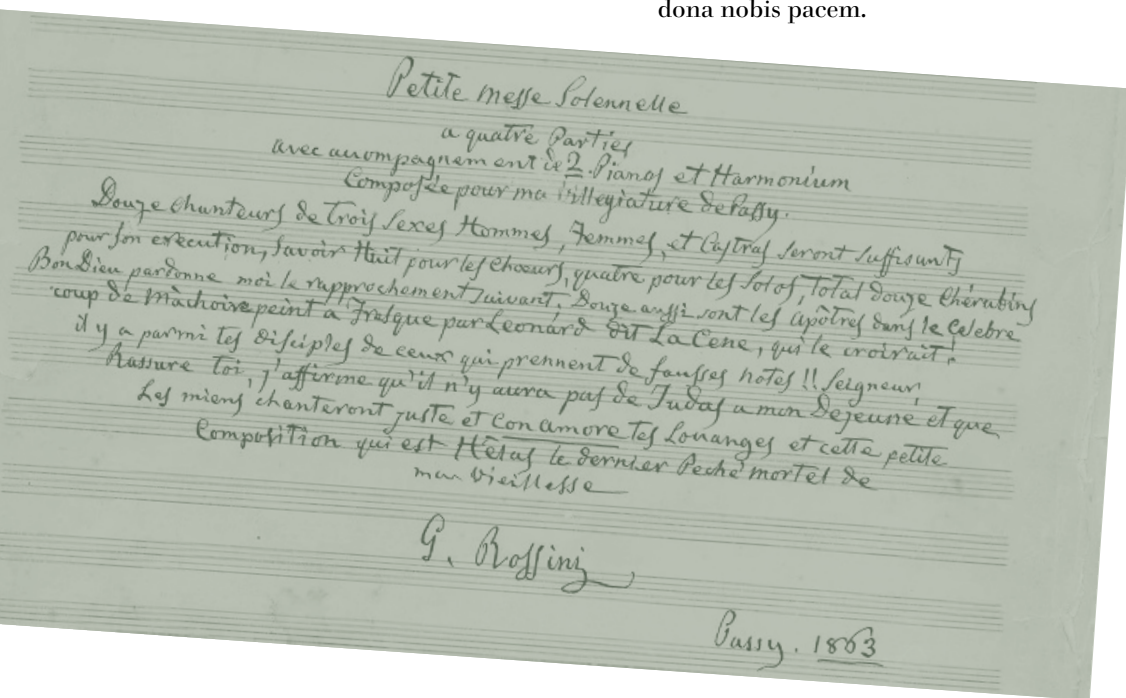 dona nobis pacem.
Petite messe Solennelle
a quatre Parties
avec accompagnement de 2 Pianos et Harmonium
Composée pour ma villegiature de Passy.
Douze chanteurs de trois Sexes Hommes, Femmes, et Castras seront suffisants
pour son execution, savoir Huit pour les Choeurs, quatre pour les Solos, Total douze Chérubins
Bon Dieu pardonne moi le rapprochement suivant, Douze aussi sont les apôtres dans le Celebre
coup de Mâchoire peint a Fresque par Leonard dit La Cene, qui le croirait!
il y a parmi tes disciples de ceux qui prennent de fausses notes!! Seigneur,
Rassure toi, j'affirme qu'il n'y aura pas de Judas a mon Dejeuné et que
Les miens chanteront juste et Con amore tes Louanges et cette petite
Composition qui est Hélas le dernier Peché mortel de
ma vieillesse
G. Rossini
Passy. 1863